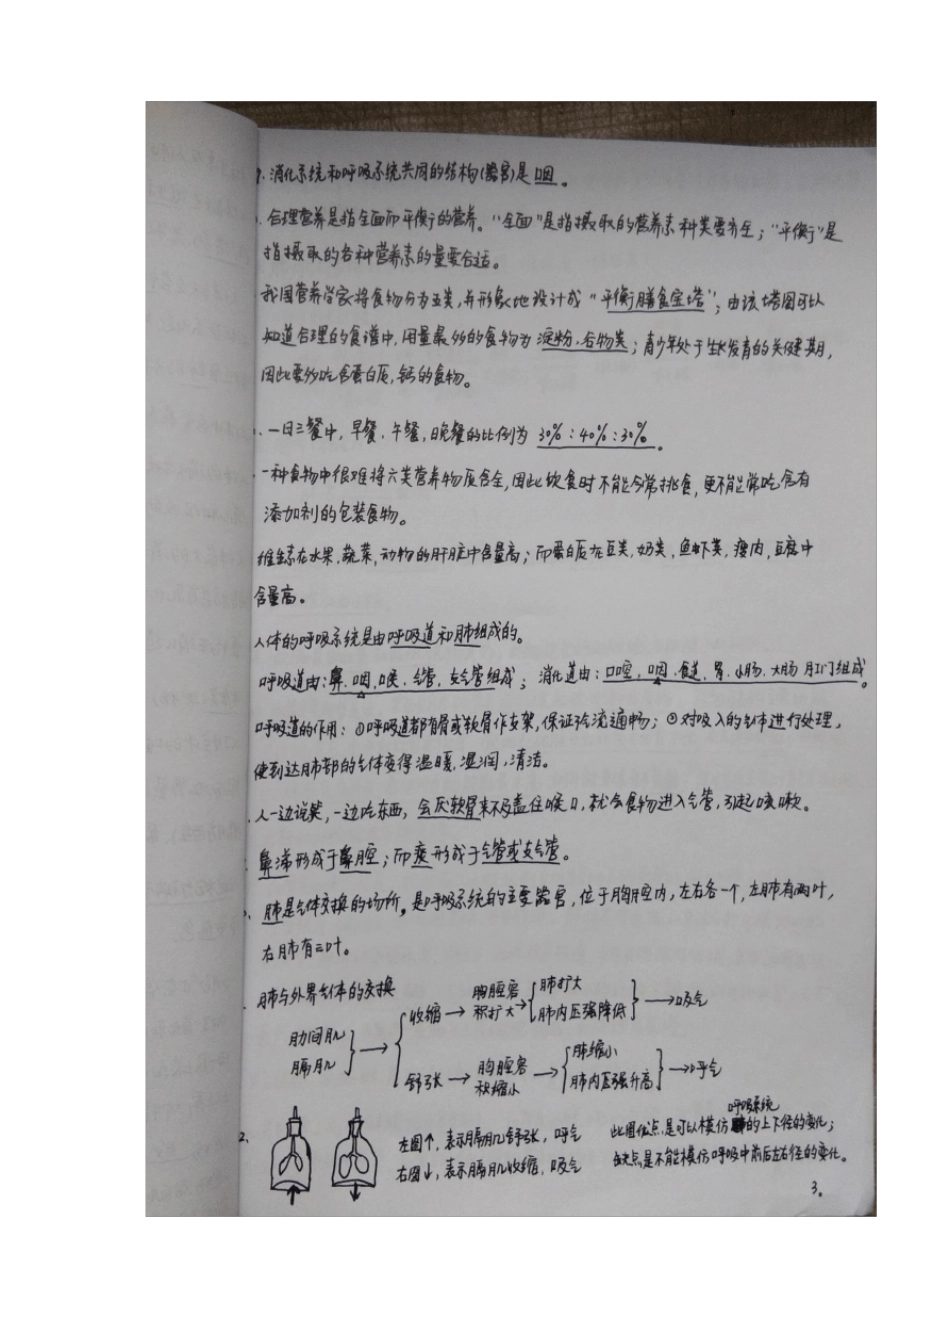 消化系统和呼吸系统共同的结构(器官)是咽。
合理营养是指全面而平衡的营养。“全面”是指摄取的营养素种类要齐全；“平衡”是
指摄取的各种营养素的量要合适。
我国营养学家将食物分为五类,并形象地设计成“平衡膳食宝塔”；由该塔图可以
知道合理的食谱中,用量最多的食物为淀粉、谷物类；青少年处于生长发育的关键期,
因此要多吃含蛋白质,钙的食物。
一日三餐中,早餐、午餐,晚餐的比例为 30%:40%:30%。
一种食物中很难将六类营养物质含全,因此饮食时不能经常挑食,更不能常吃含有
添加剂的包装食物。
维生素在水果、蔬菜,动物的肝脏中含量高；而蛋白质在豆类,奶类,鱼虾类,瘦肉,豆腐中
含量高。
人体的呼吸系统是由呼吸道和肺组成的。
呼吸道由:鼻、咽,喉、气管,支气管组成；消化道由:口腔,咽、食道、胃、小肠、大肠 肛门组成。
呼吸道的作用: ①呼吸道都有骨或软骨作支架,保证气流通畅；②对吸入的气体进行处理,
使到达肺部的气体变得温暖,湿润,清洁。
人一边说笑,一边吃东西,会厌软骨来不及盖住喉口,就会食物进入气管,引起咳嗽。
鼻涕形成于鼻腔；而痰形成于气管或支气管。
肺是气体交换的场所,是呼吸系统的主要器官,位于胸腔内,左右各一个,左肺有两叶,
右肺有三叶。
肺与外界气体的交换
肋间肌
膈肌
收缩→胸腔容积扩大→肺扩大 肺内压强降低→吸气
舒张→胸腔容积缩小→肺缩小 肺内压强升高→呼气
2、
左图↑,表示膈肌舒张,呼气
右图↓,表示膈肌收缩,吸气
此图优点是可以模仿呼吸系统的上下径的变化；
缺点是不能模仿呼吸中前后左右径的变化。
3。